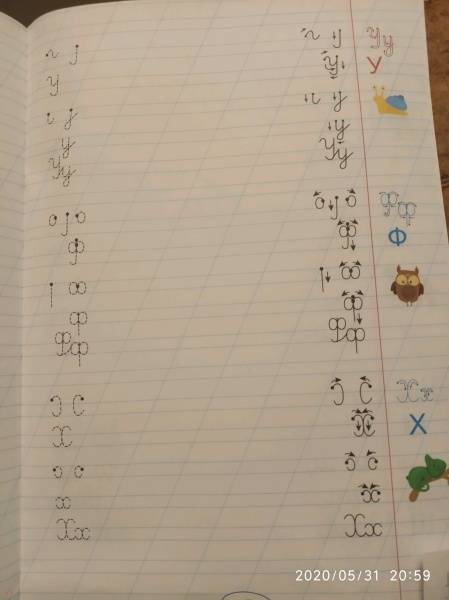 Уу
У У У
у у
Уу Уу
Фф
Ф Ф Ф
ф ф
Фф Фф
Хх
Х Х Х
х х
Хх Хх
2020/05/31 20:59